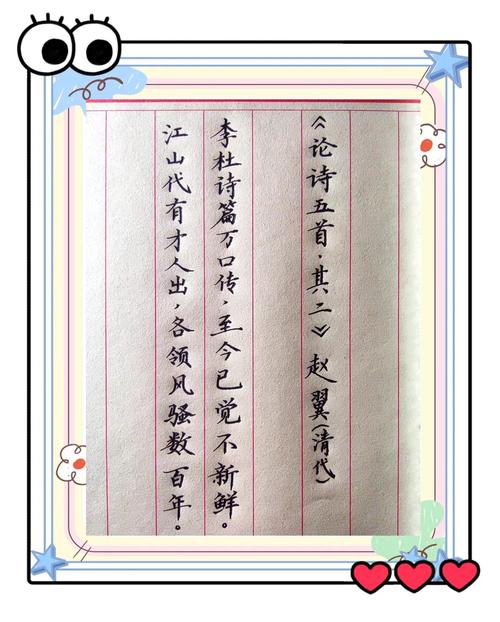 《论诗五首·其二》赵翼(清代)
李杜诗篇万口传，至今已觉不新鲜。
江山代有才人出，各领风骚数百年。